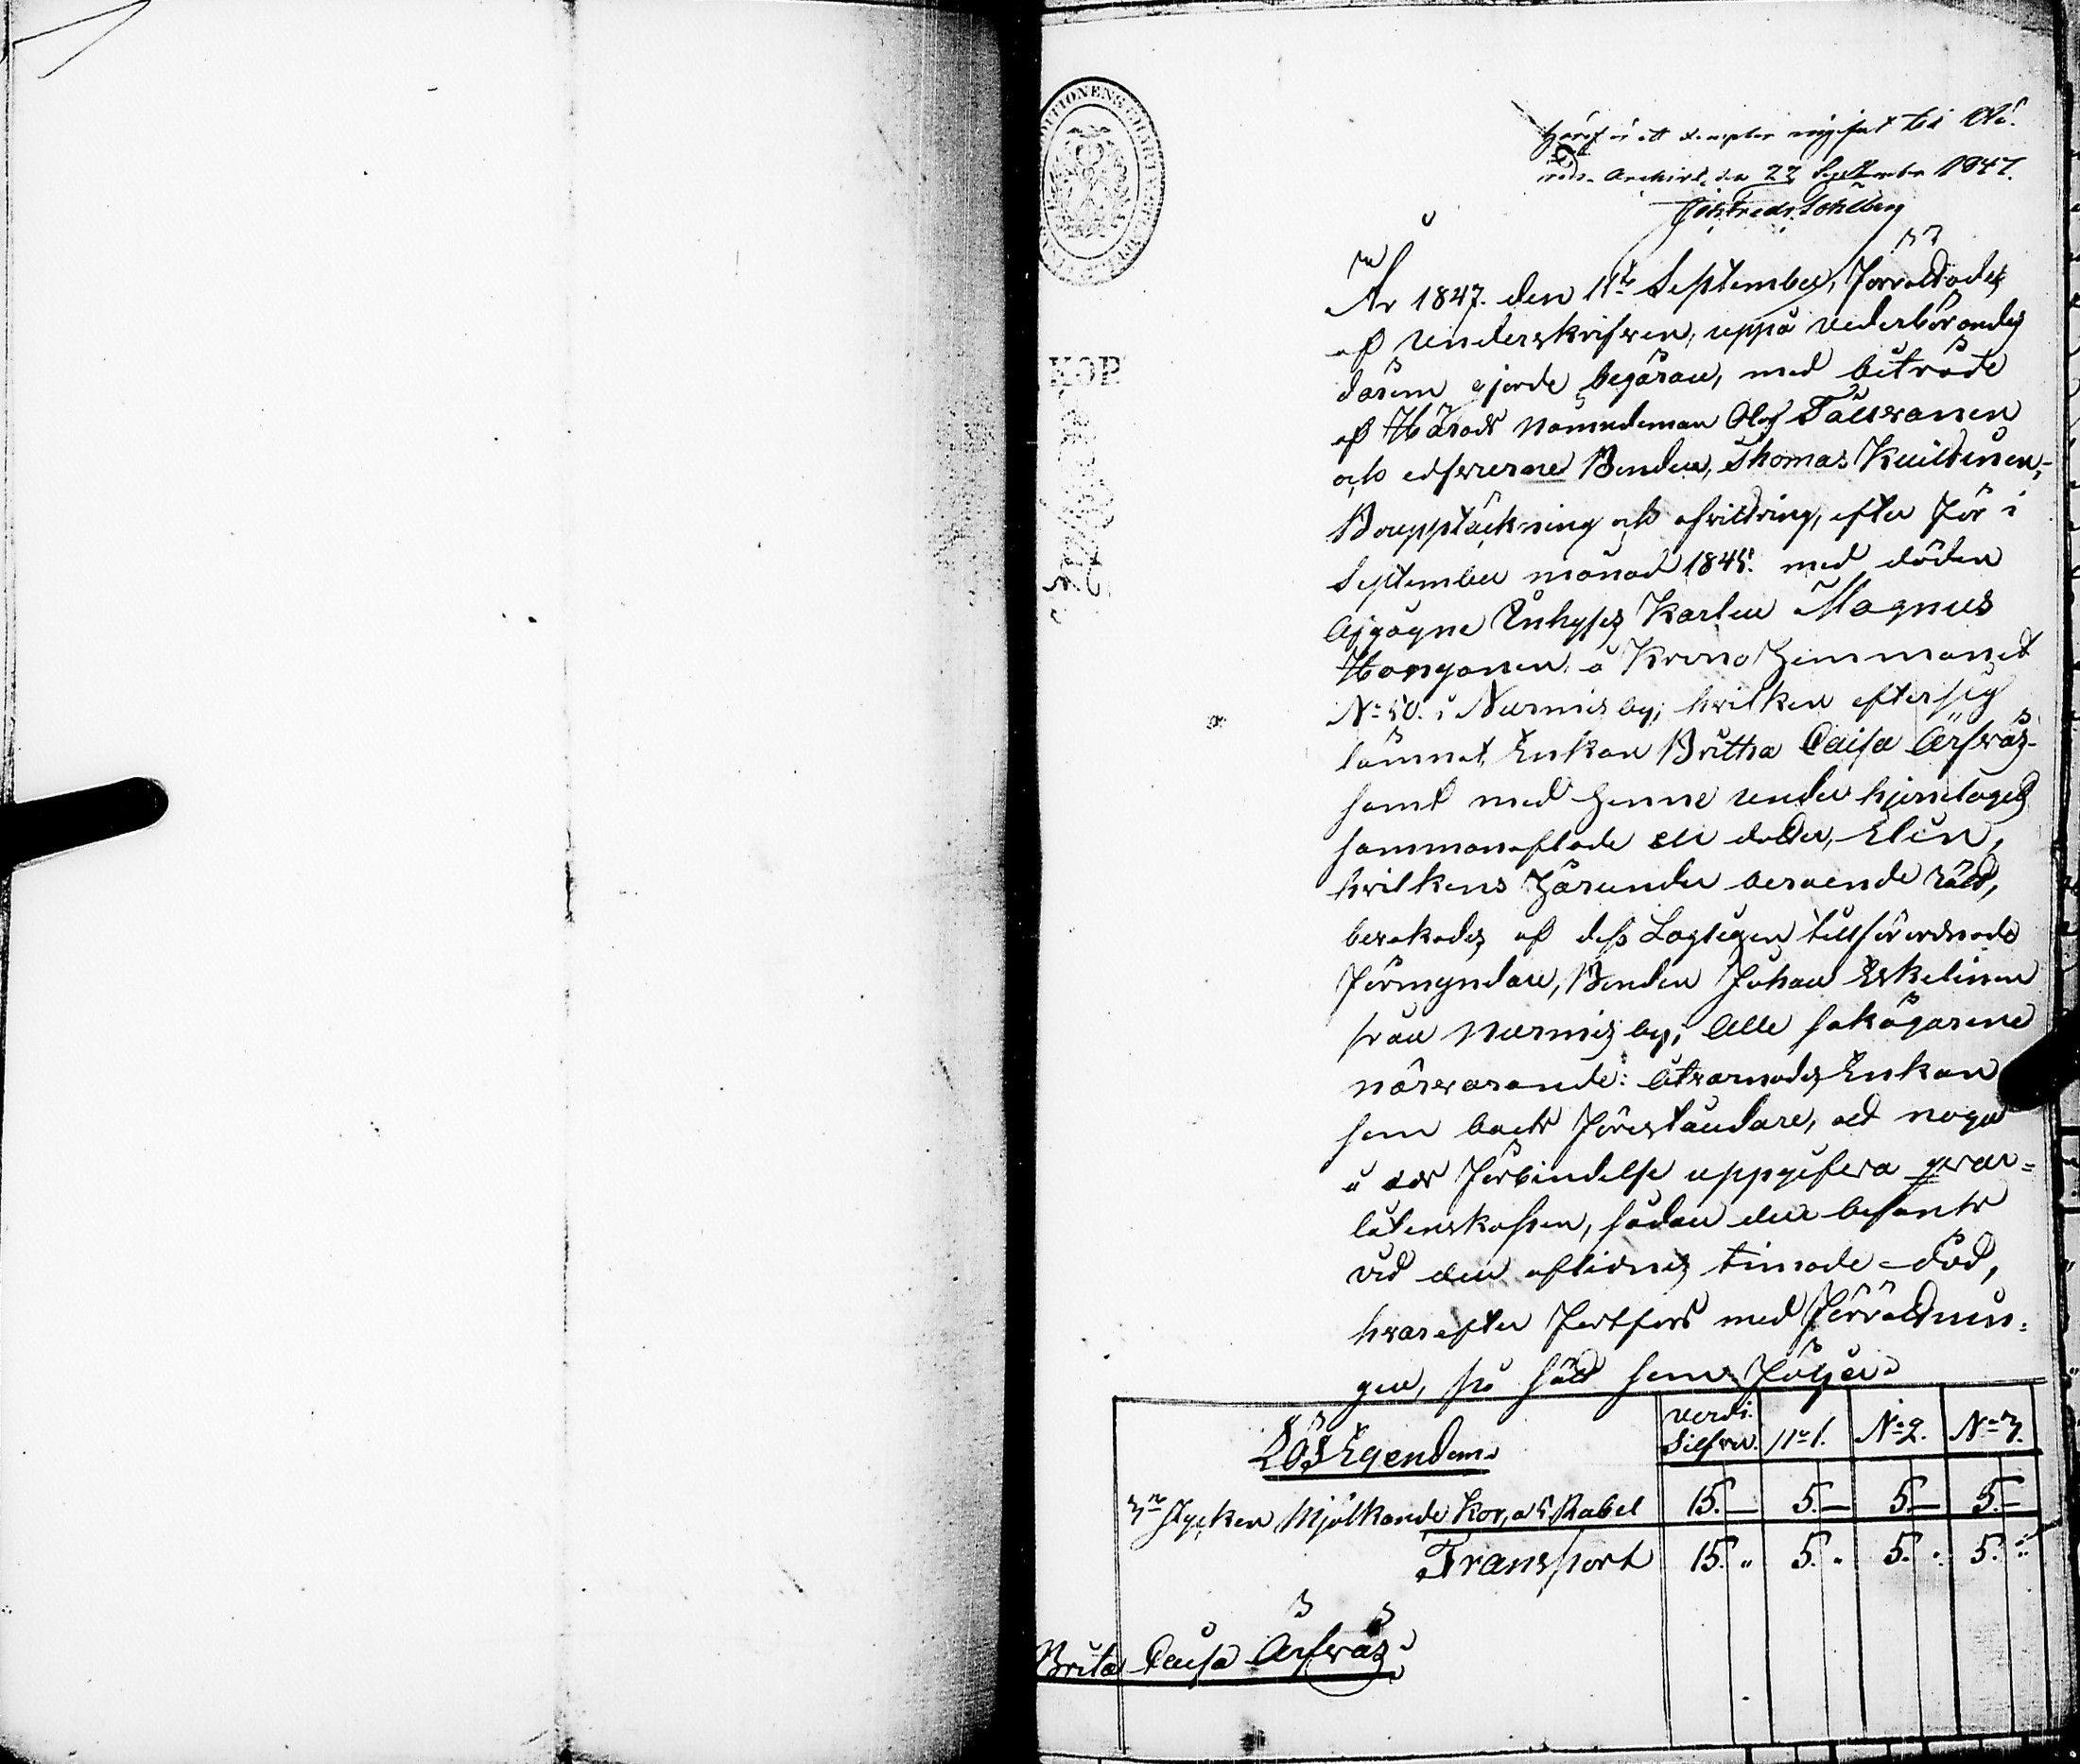 Häraf är ett exemplar ingifvet till Hä-
rads Archivet, den 22 September 1847.
År 1847. den 11te September, förrättades
af Underskrifven, uppå vederbörandes
därom gjorde begäran, med biträde
af Härads Nämndeman Olof Tolvanen
och edsvurne Bonden, Thomas Kuittinen,
Bouppteckning och afvittring, efter för i
September månad 1845. med döden
afgångne Inhyses Karlen Magnus
Hongonen å KronoHemmanet
No 50. i Nurmis by; hvilken efter sig
lämnat Enkan Britha Caisa Ärfväs-
samt med henne under hjonelaget
sammanaflade en dotter, Elin,
hvilkens härunder beroende rätt,
bevakades af dess Lagligen tillförordnade
Förmyndare, Bonden Johan Eskelinen
från Nurmis by; Alle sakägarene
närvarande: åtvarnades Enkan
som boets föreståndare, att noga
i eds förbindelse uppgifva qvar-
låtenskapen, sådan den befants
vid den aflidnes timade död,
hvarefter fortfors med förrättnin-
gen, på sätt som följer:
Lös Egendom. Verdi. Silfver. No 1. No 2. No 3.
3ne stycken Mjölkande Kor, a 5 Rubel 15. — 5. — 5. — 5. —
Transport 15. " 5. " 5. " 5. "
Brita Caisa Ärfväs